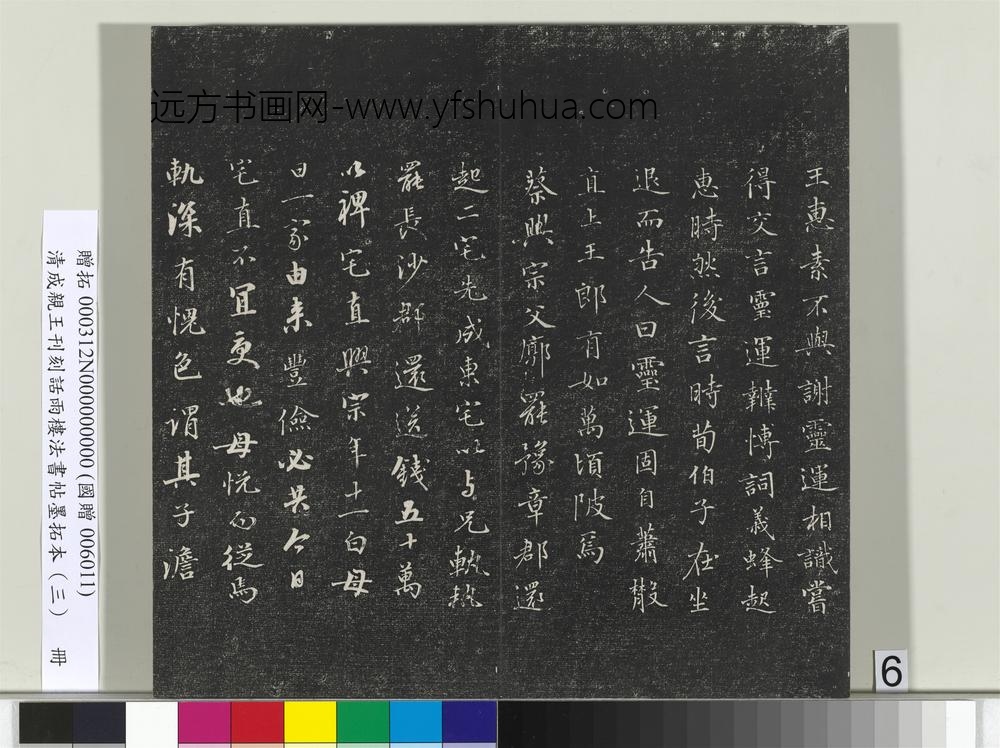 远方书画网-www.yfshuhua.com
王惠素不與謝靈運相識嘗
得交言靈運辯博詞義蜂起
惠時然後言時荀伯子在坐
退而告人曰靈運固自蕭散
直上王郎有如萬頃陂焉
蔡興宗父廓罷豫章郡還
起二宅先成東宅以与兄軌
罷長沙郡還送錢五十萬
以裨宅直興宗年十一白母
曰一家由来豐儉必共今日
宅直不宜受也母悅而從焉
軌深有愧色謂其子澹
贈拓 000312N000000000(國贈 006011)
清成親王刊刻詒晉樓法書帖墨拓本(三) 冊
6